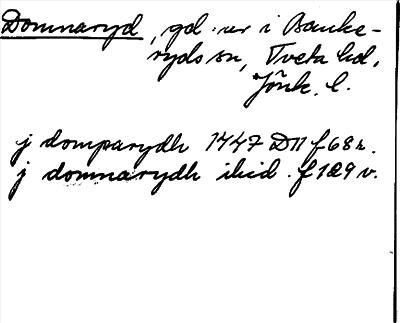 Domnaryd, gd .ner i Barke-
ryds sn, Tveta hd,
Jönk. l.
j domparydh 1447 D11 f68r.
j domnarydh ibid. f129v.